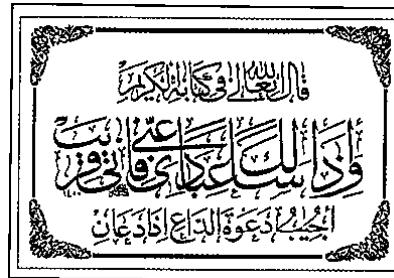 قال الله تعالى في كتابه الكريم
وإذا سألك عبادي عني فإني قريب
أجيب دعوة الداع إذا دعان